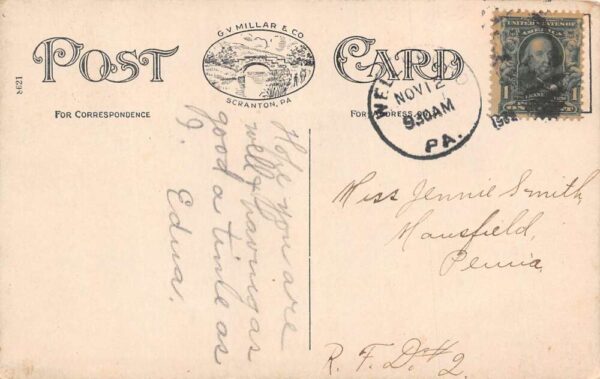 POST CARD
G.V MILLAR & CO
SCRANTON, PA.
FOR CORRESPONDENCE
FOR ADDRESS
8621
Hope you are
well & having as
good a time as
I. Edna.
WEL
NOV 12
930AM
PA.
UNITED STATES OF AMERICA
1 1
Miss Jennie Smith,
Mansfield,
Penna
R. F. D. #2.